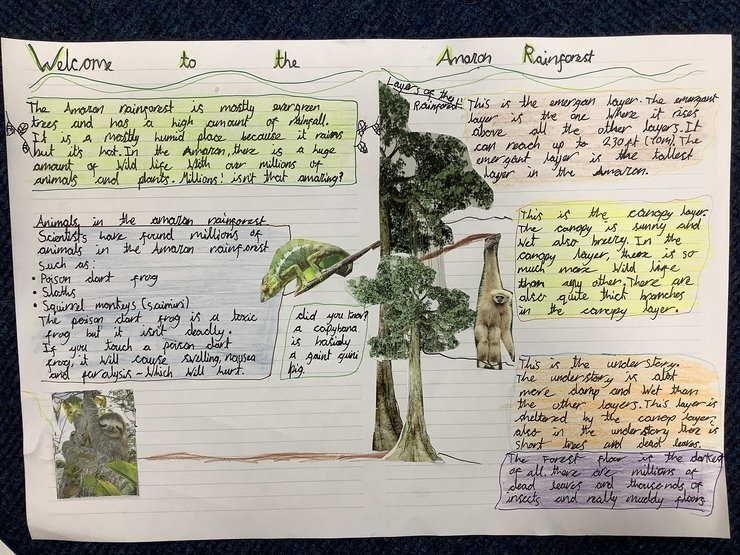 Welcome to the Amazon Rainforest
The Amazon rainforest is mostly evergreen
trees and has a high amount of rainfall.
It is a mostly humid place because it rains
but it's hot. In the Amazon, there is a huge
amount of wild life with over millions of
animals and plants. Millions! isn't that amazing?
Animals in the amazon rainforest
Scientists have found millions of
animals in the Amazon rainforest
such as:
• Poison dart frog
• Sloths
• Squirrel monkeys (saimiri)
The poison dart frog is a toxic
frog but it isn't deadly.
If you touch a poison dart
frog, it will cause swelling, nausea
and paralysis - which will hurt.
did you know?
a capybara
is basicly
a gaint guni
pig.
Layers of the
Rainforest
This is the emergan layer. The emergant
layer is the one where it rises
above all the other layers. It
can reach up to 230ft (70m). The
emergant layer is the tallest
layer in the Amazon.
This is the canopy layer.
The canopy is sunny and
wet also breezy. In the
canopy layer, there is so
much more wild life
than any other. There are
also quite thick branches
in the canopy layer.
This is the understory.
The understory is alot
more damp and wet than
the other layers. This layer is
sheltered by the canop layer,
also in the understory there is
short trees and dead leaves.
The Forest floor is the darkest
of all. there are millions of
dead leaves and thousands of
insects and really muddy floors